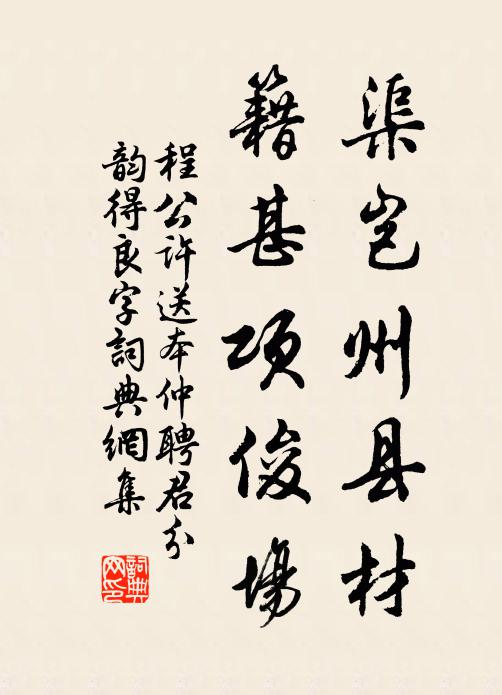 渠岂州县材
籍甚项俊場
程公许送李仲聘君分
韵得良字詞典網集
詞典网印